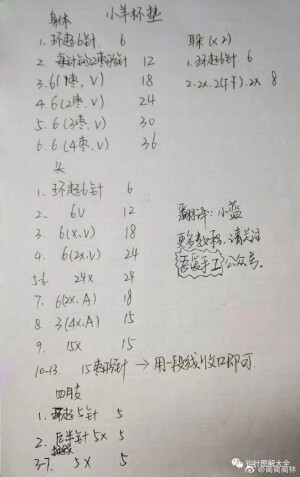 小羊杯垫
身体
1. 环起6针 6
2. 每针的2枣形针 12
3. 6(1枣, V) 18
4. 6(2枣, V) 24
5. 6(3枣, V) 30
6. 6(4枣, V) 36
头
1. 环起6针 6
2. 6V 12
3. 6(x, V) 18
4. 6(2x, V) 24
5-6. 24x 24
7. 6(2x, A) 18
8. 3(4x, A) 15
9. 15x 15
10-13. 15枣形针 → 用一段线收口即可.
四肢
1. 环起5针 5
2. 后半针5x 5
3-7. 5x 5
耳朵 (x2)
1. 环起6针 6
2. 2x. 2(F长). 2x 8
翻译: 小蓝
更多教程, 请关注
公众号.
钩针图解大全
@茼茼茼林